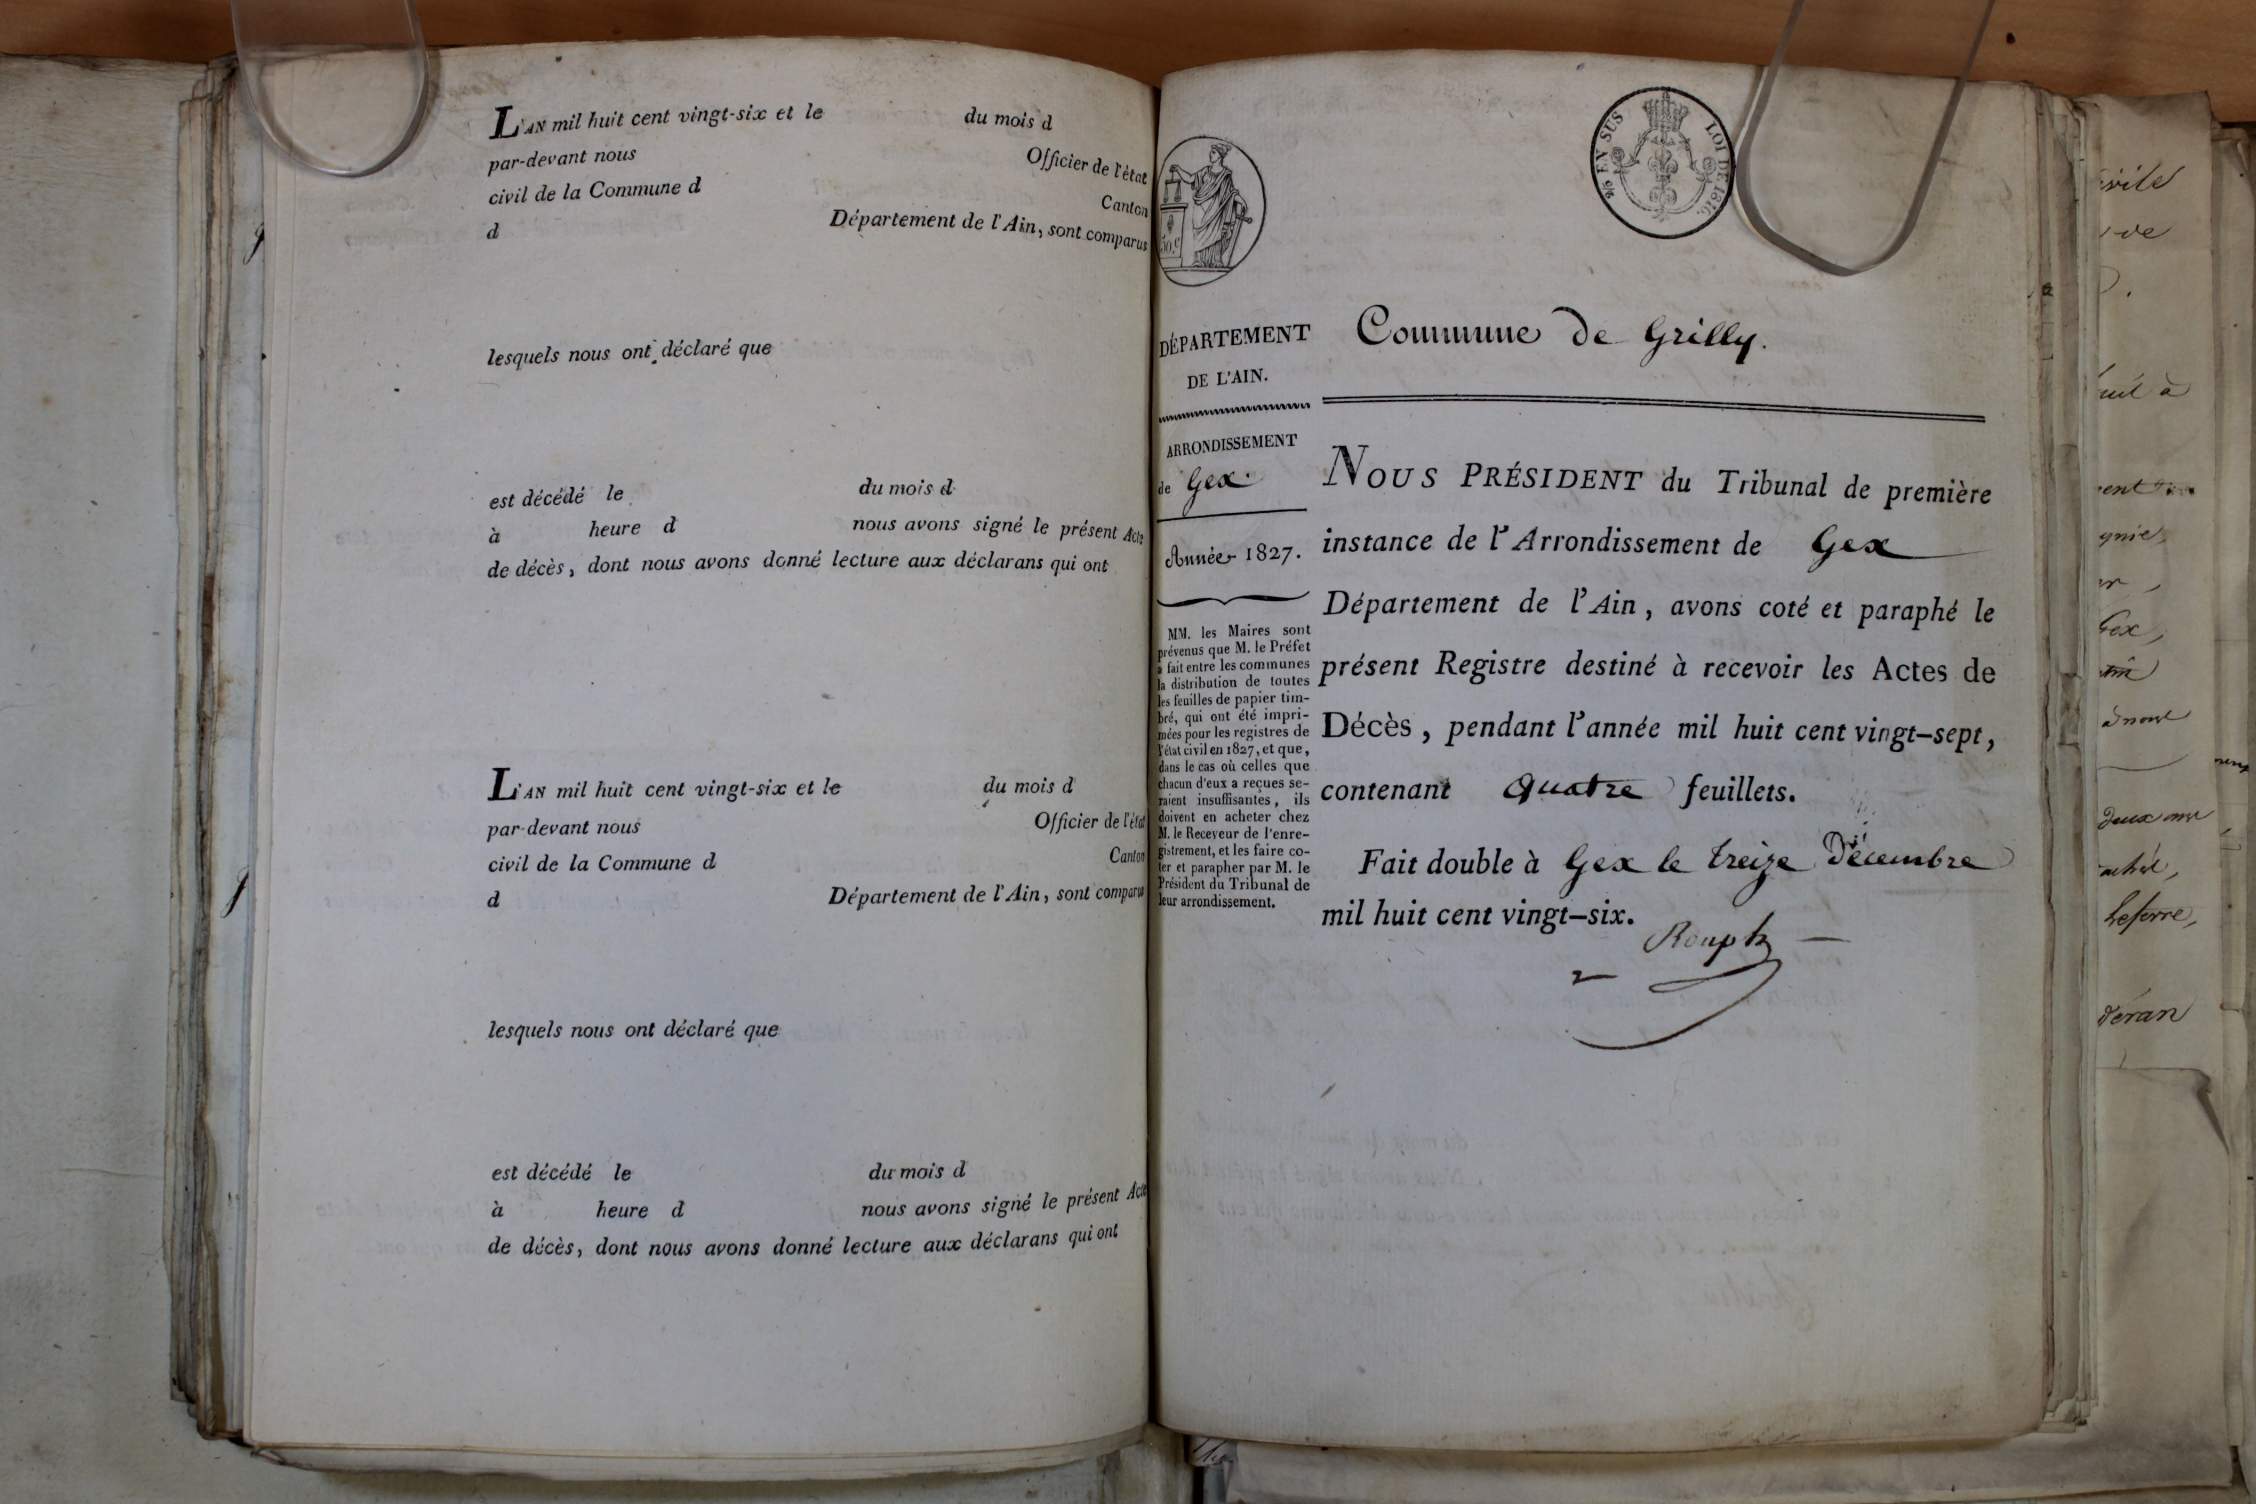 L'AN mil huit cent vingt-six et le du mois d
par-devant nous Officier de l'état
civil de la Commune d Canton
d Département de l'Ain, sont comparus
lesquels nous ont déclaré que
est décédé le du mois d
à heure d nous avons signé le présent Acte
de décès, dont nous avons donné lecture aux déclarans qui ont
L'AN mil huit cent vingt-six et le du mois d
par-devant nous Officier de l'état
civil de la Commune d Canton
d Département de l'Ain, sont comparus
lesquels nous ont déclaré que
est décédé le du mois d
à heure d nous avons signé le présent Acte
de décès, dont nous avons donné lecture aux déclarans qui ont
50.c
EN SUS LOI DE 1816.
DÉPARTEMENT
DE L'AIN.
ARRONDISSEMENT
de Gex.
Année 1827.
MM. les Maires sont
prévenus que M. le Préfet
a fait entre les communes
la distribution de toutes
les feuilles de papier tim-
bré, qui ont été impri-
mées pour les registres de
l'état civil en 1827, et que,
dans le cas où celles que
chacun d'eux a reçues se-
raient insuffisantes, ils
doivent en acheter chez
M. le Receveur de l'enre-
gistrement, et les faire co-
ter et parapher par M. le
Président du Tribunal de
leur arrondissement.
Commune de Grilly.
NOUS PRÉSIDENT du Tribunal de première
instance de l'Arrondissement de Gex
Département de l'Ain, avons coté et paraphé le
présent Registre destiné à recevoir les Actes de
Décès, pendant l'année mil huit cent vingt-sept,
contenant quatre feuillets.
Fait double à Gex le treize Décembre
mil huit cent vingt-six.
Rouph
de
Gex,
deux
Leferre,